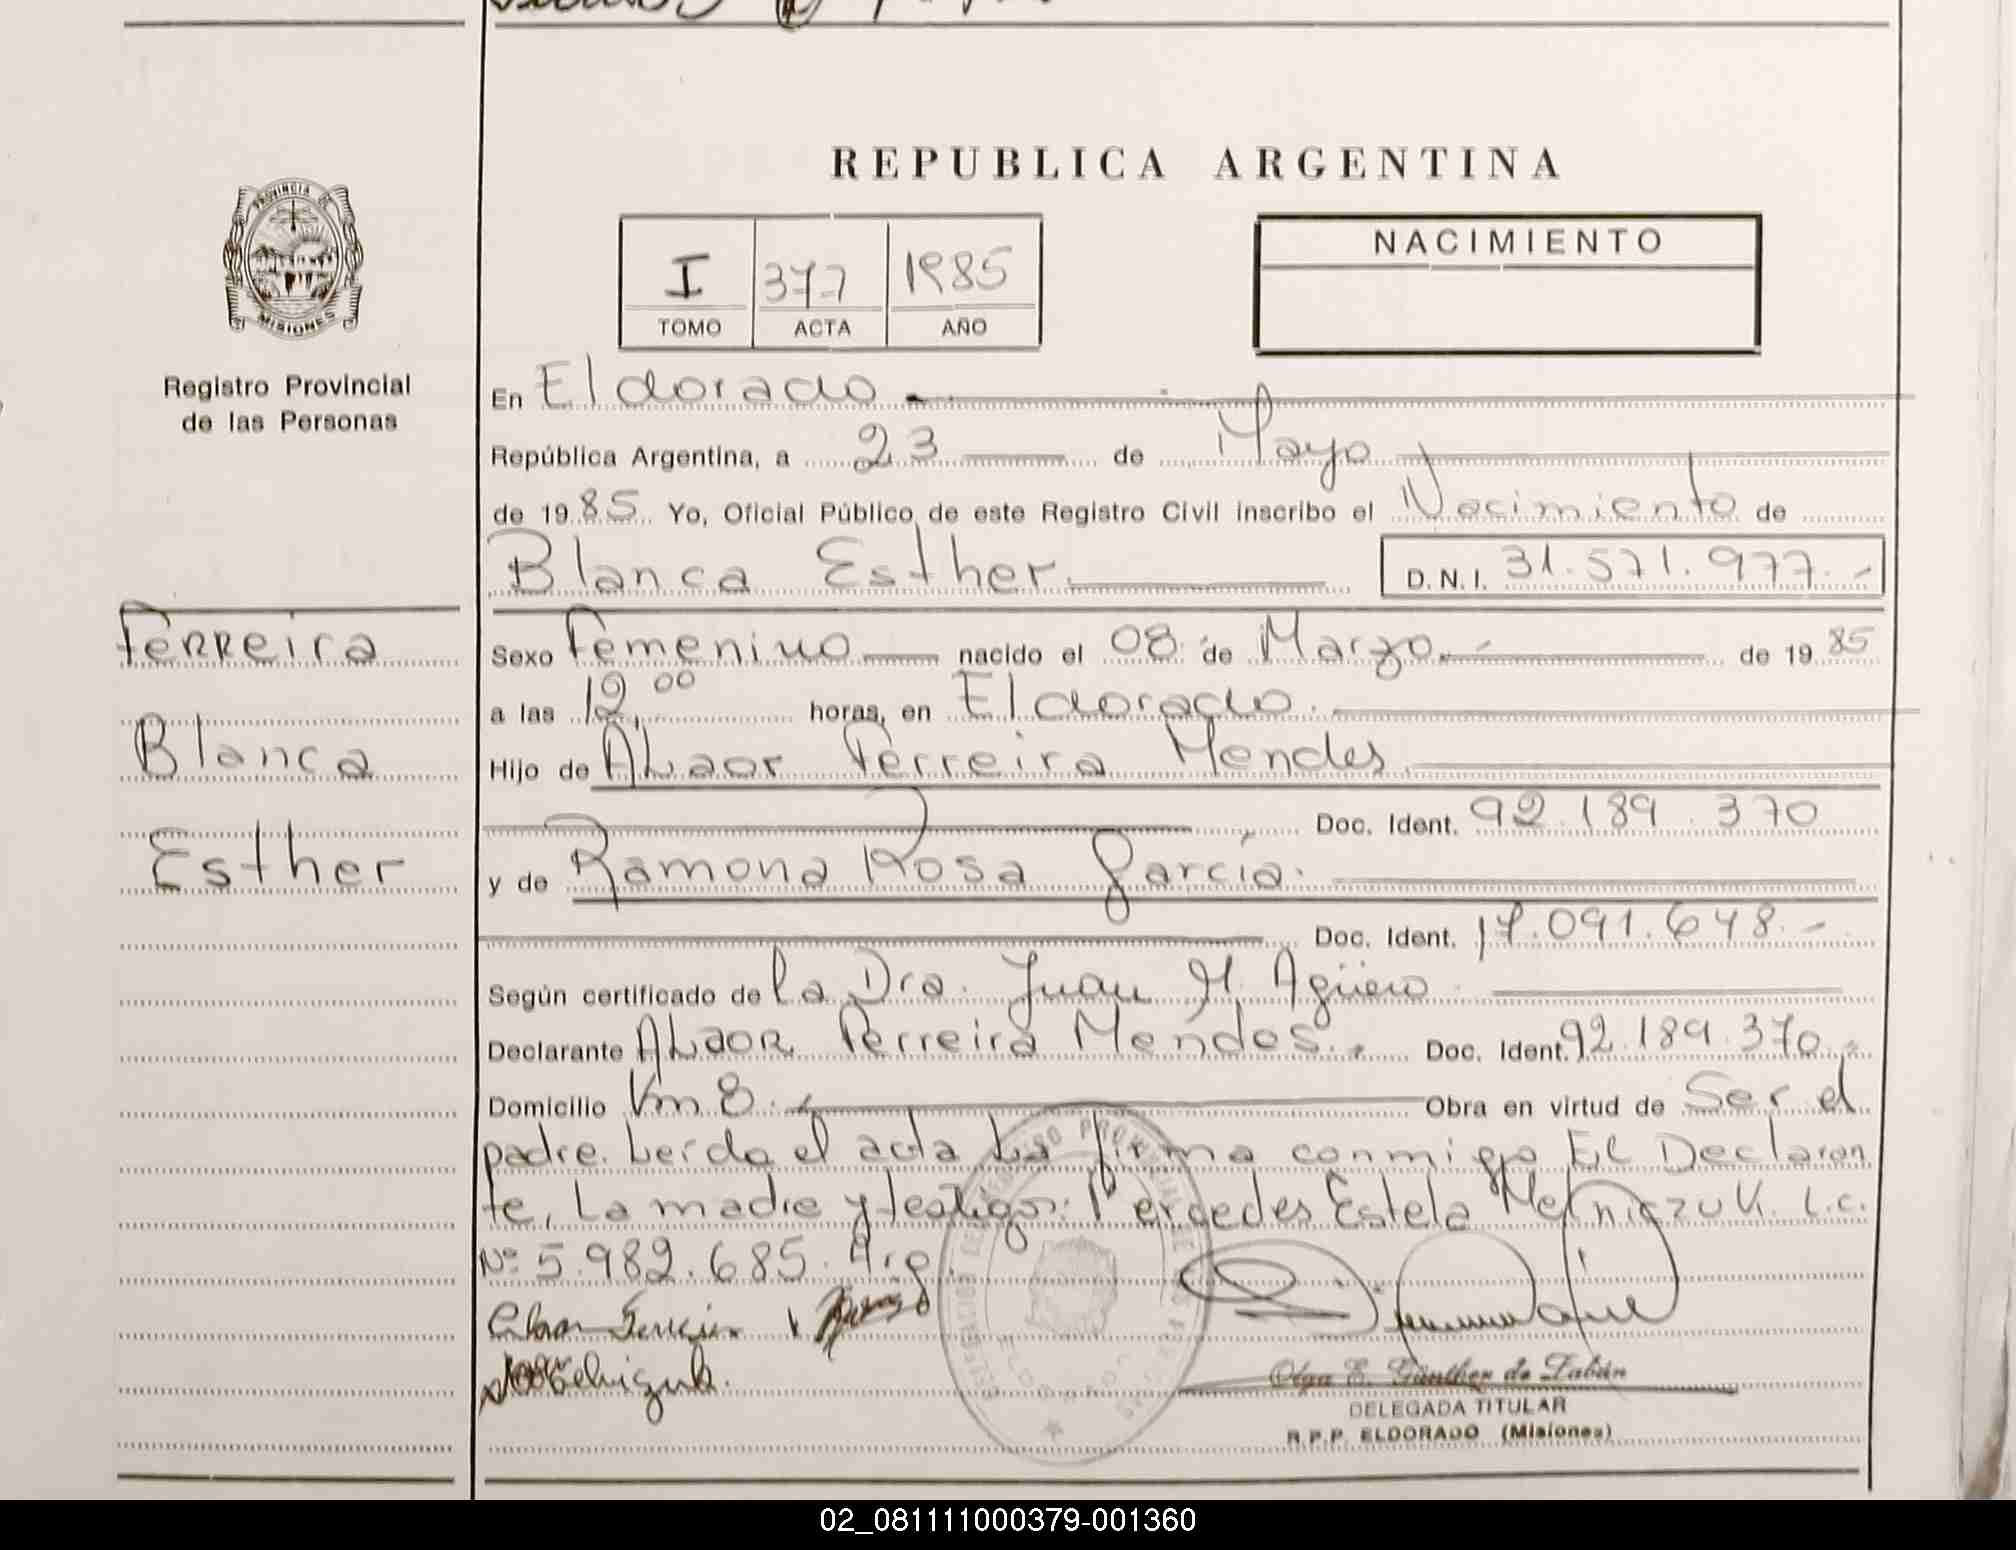 REPUBLICA ARGENTINA
PROVINCIA DE
MISIONES
Registro Provincial
de las Personas
I 377 1985
TOMO ACTA AÑO
NACIMIENTO
En Eldorado
República Argentina, a 23 de Mayo
de 1985 Yo, Oficial Público de este Registro Civil inscribo el Nacimiento de
Blanca Esther D.N.I. 31.571.977.-
Ferreira
Blanca
Esther
Sexo Femenino nacido el 08 de Marzo.- de 1985
a las 12,00 horas, en Eldorado.
Hijo de ALaor Ferreira Mendes
Doc. Ident. 92.189.370
y de Ramona Rosa García.
Doc. Ident. 17.091.648.-
Según certificado de la Dra. Juan M. Agüero
Declarante ALaor Ferreira Mendes. Doc. Ident. 92.189.370.-
Domicilio Km 8. Obra en virtud de Ser el
padre. Leída el acta La firma conmigo El Declaran
te, La madre y testigo: Mercedes Estela Melniczuk L.C.
Nº 5.982.685. Arg.
Olga E. Günther de Fabián
DELEGADA TITULAR
R.P.P. ELDORADO (Misiones)
02_081111000379-001360